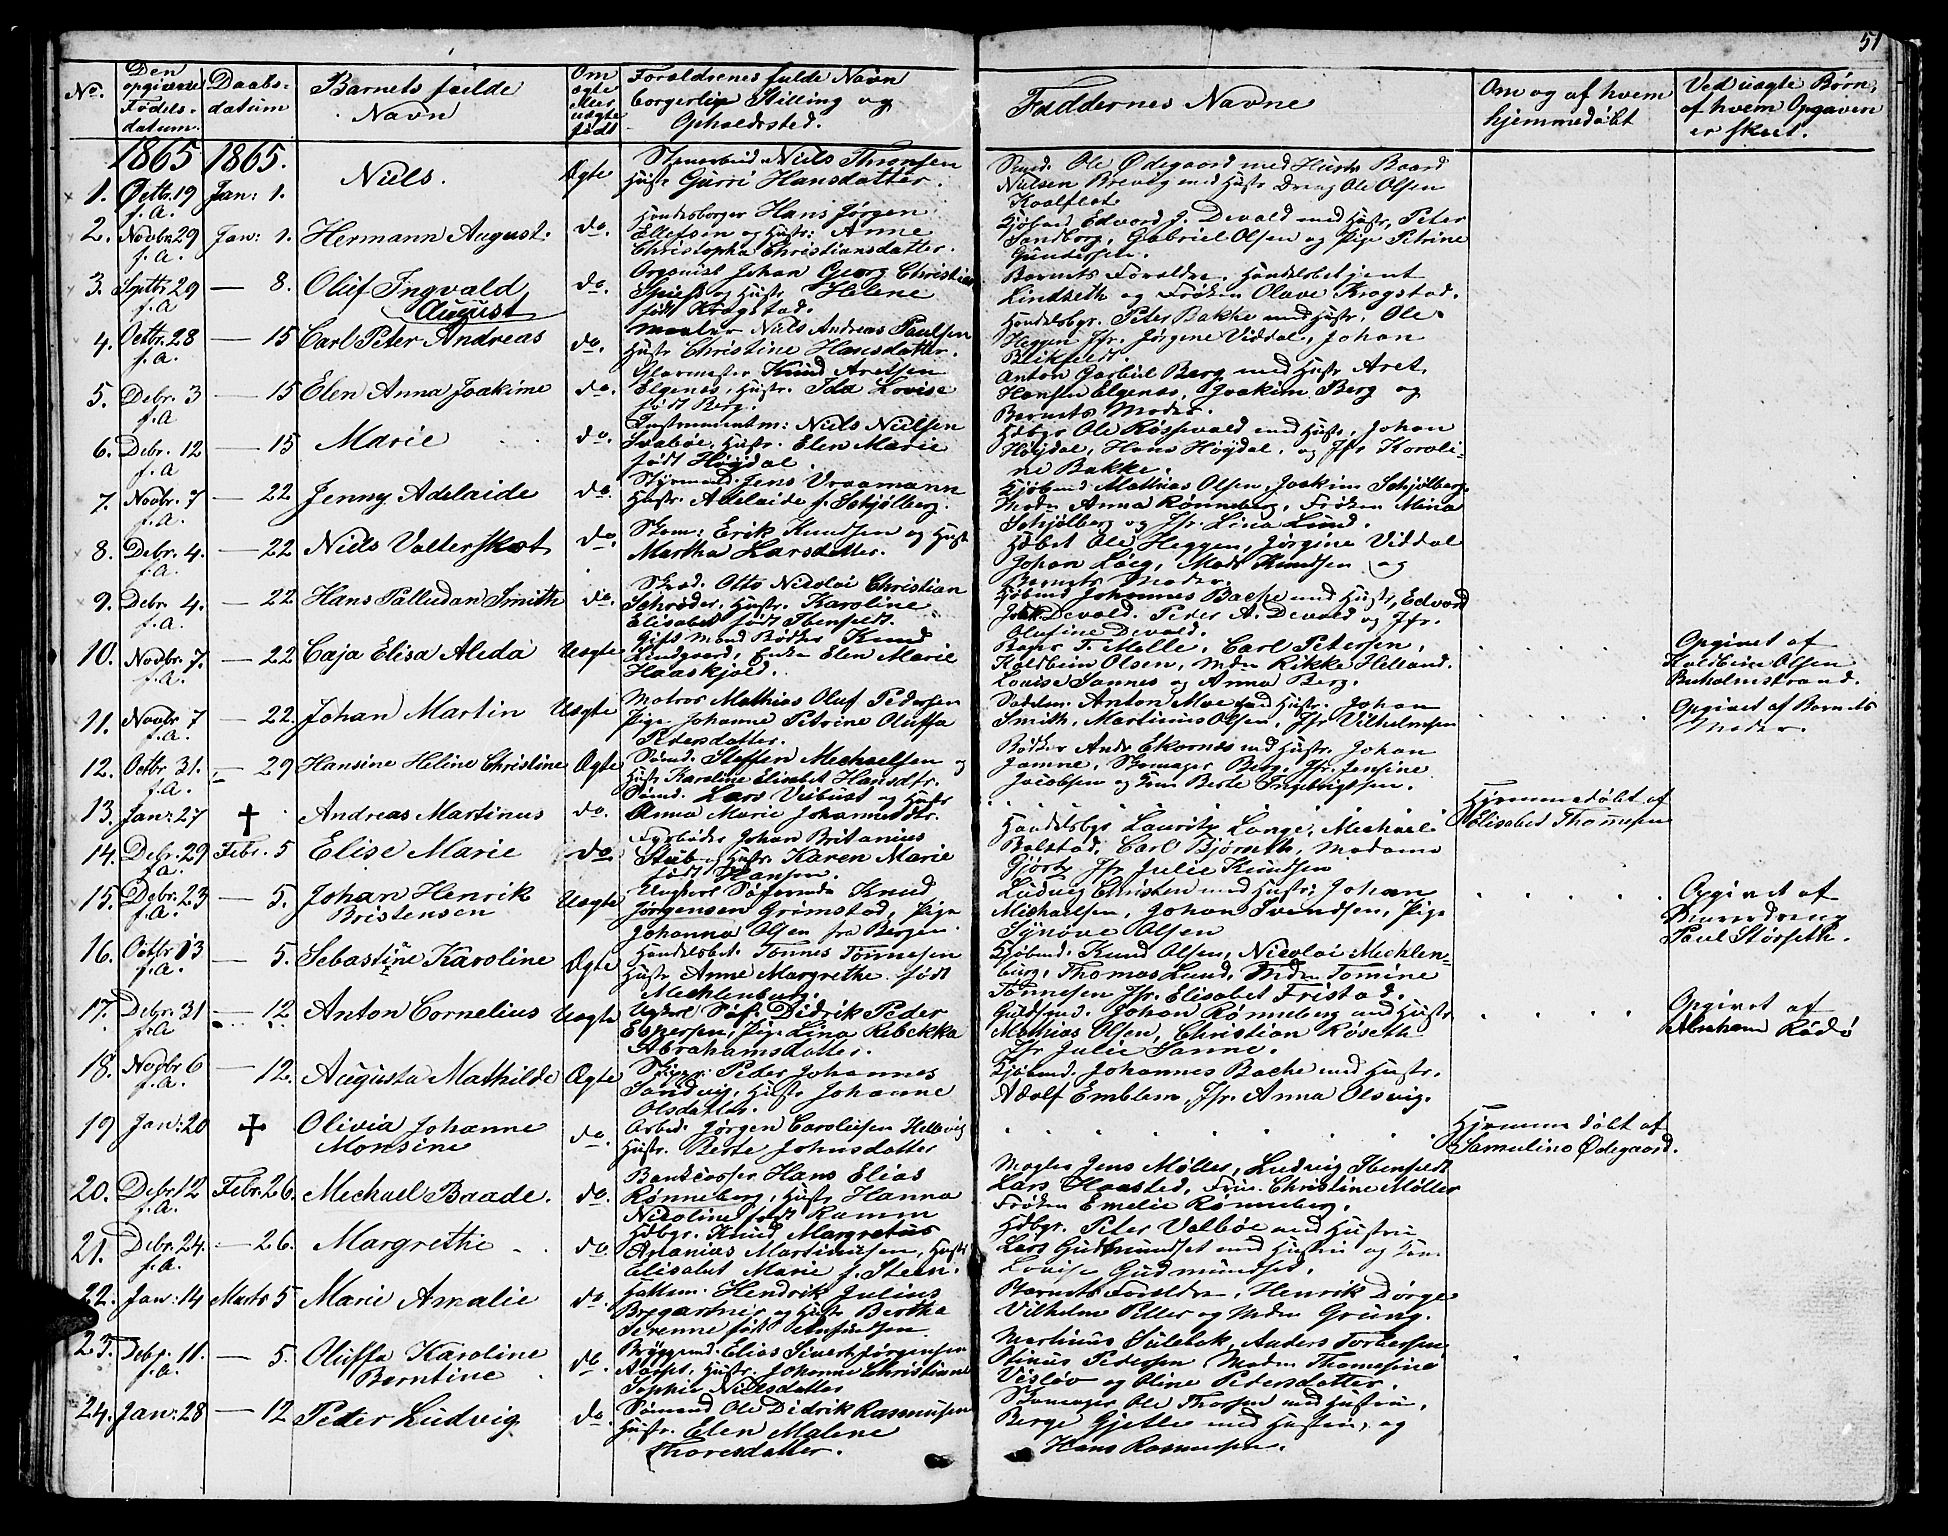 51
No.
Den opgivne Fødselsdatum.
Daabsdatum
Barnets fulde Navn
Om ægte eller uægte født
Forældrenes fulde Navn borgerlige Stilling og Opholdssted.
Faddernes Navne
Om og af hvem hjemmedøbt
Ved uægte Børn, af hvem Opgaven er skeet.
1865 1865.
1. Octbr. 19 f.a. Jan: 1. Niels. Ægte
Niels Thronsen
Hustr Gurri Hansdatter.
Ole Ødegaard med Hustr. Baard
Nielsen Brevig med Hustr. Dreng Ole Olsen
Koalflot
2. Novbr. 29 f.a. Jan: 1. Hermann August. do.
Handelsborger Hans Jørgen
Ellefsen og Hustr: Anne
Christopha Christiansdatter.
Edvard J. Devold med Hustr, Peter
Sandborg, Gabriel Olsen og Pige Petrine
Gundersen.
3. Septbr 29 f.a — 8. Oluf Ingvald August do.
Organist Johan Georg Christian
Spiess og Hustr Helene
født Krogstad.
Barnets Forældre, Handelsbetjent
Lindseth og Frøken Olave Krogstad.
4. Octbr. 28 f.a. — 15 Carl Peter Andreas do.
Maaler Niels Andreas Paulsen
Hustr Christine Hansdatter.
Handelsbgr. Peter Bakke med Hustr. Ole
Heggen Jfr. Jørgene Viddal, Johan
Blikfeldt.
5. Debr. 3 f.a — 15 Elen Anna Joakime do.
Glarmester Knud Aretsen
Elgenes, Hustr. Ida Lovise
født Berg.
Anton Garbul Berg med Hustr Aret
Hansen Elgenes, Joakim Berg og
Barnets Moder.
6. Debr. 12 f.a — 15 Marie do.
Instrumentm: Niels Nielsen
Svabøe, Hustr. Elen Marie
født Høydal
Hdbgr Ole Røssevold med Hustr, Johan
Høydal, Hans Høydal, og Jfr Karoline
Bakke.
7. Novbr. 7 f.a. — 22 Jenny Adelaide do.
Styrmand Jens Vraamann
Hustr. Adelaide f. Schjølberg.
Kjøbmd. Mathias Olsen, Joakim Schjølberg
Madm Anna Rønneberg, Frøken Mina
Schjølberg og Jfr. Lina Lund.
8. Debr. 4. f.a. — 22 Niels Volterskot do.
Skom: Erik Knudsen og Hustr
Martha Larsdatter.
Hdbet Ole Heggen, Jørgine Viddal
Johan Løeg, Mads Knudsen og
Barnets Moder.
9. Debr 4. f.a. — 22 Hans Palludan Smith do.
Skræd. Otto Nicolai Christian
Schrøder, Hustr. Karoline
Elisabet født Ibenfeldt.
Kjøbmd Johannes Bache med Hustr, Edvard
Devold. Peder A. Devold og Jfr.
Olufine Devold.
10. Novbr. 7. f.a. — 22 Caja Elisa Aleda Uægte
Gift Mand Bødker Knud
Lundgaard, Enke Elen Marie
Haaskjold.
T. Melle, Carl Petersen,
Kaldbein Olsen, Mdm Rikke Helland.
Louise Sannes og Anna Berg.
Opgivet af
Kaldbein Olsen
Buholmstrand.
11. Novbr 7 f.a. — 22. Johan Martin Uægte
Matros Mathias Oluf Pedersen
Pige Johanne Petrine Oluffa
Pedersdatter.
Sadelm. Anton Moe med Hustr. Johan
Smith, Martinus Olsen, Jfr Vilhelmsen
Opgivet af Barnets
Moder.
12. Octbr 31. f.a. — 29 Hansine Heline Christine Ægte
Sømd. Steffen Mechaelsen og
Hustr Karoline Elisabet Hansdtr.
Bødker Andr Ekornæs med Hustr. Johan
Jamne, Skomager Berg, Jfr. Jensine
Jacobsen og Berte Ingebrigtsen.
13. Jan: 27 † Andreas Martinus do.
Sømd. Lars Vebust og Hustr
Anna Marie Johannesdtr.
Hjemmedøbt af
Elisabet Thomesen
14. Debr. 29 f.a. Febr. 5 Elise Marie do
Fyrbøder Johan Britanius
Stub og Hustr. Karen Marie
født Hansen.
Handelsbgr Lauritz Lange, Michael
Balstad, Carl Bjørseth, Madame
Gjørtz Jfr Julie Knudsen
15. Debr. 23 f.a. — 5. Johan Henrik Bristensen Uægte
Ungkarl Søfarende Knud
Jørgensen Grimstad, Pige
Johanna Olsen fra Bergen.
Ludvig Christen med Hustr; Johan
Michaelsen, Johan Svendsen, Pige
Synøve Olsen
Opgivet af
Paul Størseth.
16. Octbr 13 f.a. — 5. Sebastine Karoline Ægte
Handelsbet. Tønnes Tønnesen
Hustr Anne Margrethe født
Mechlenburg.
Kjøbmd. Knud Olsen, Nicolai Mechlenburg,
Thomas Lund, Mdm Tomine
Tønnesen Jfr. Elisabet Fristad.
17. Debr. 31 f.a — 12 Anton Cornelius Uægte
Ungkarl Søf. Didrik Peder
Espersen, Pige Lina Rebekka
Abrahamsdatter.
Guldsmd. Johan Rønneberg med Hustr
Mathias Olsen, Christian Røseth
Jfr Julie Sanne.
Opgivet af
Abraham Rødø
18. Novbr 6 f.a. — 12. Augusta Mathilde Ægte
Skippr: Peder Johannes
Sandvig, Hustr Johanne
Olsdatter.
Kjøbmd. Johannes Bache med Hustr.
Adolf Emblem, Jfr. Anna Olsvig.
19 Jan: 20 † Olivia Johanne Monsine do.
Arbed: Jørgen Caroliusen Hellevig
Hustr. Berte Johnsdatter
Hjemmedøbt af
Samuline Ødegaard.
20. Debr 12 f.a. Febr. 26. Mechael Baade. do.
Bankcasser Hans Elias
Rønneberg, Hustr Hanna
Nicoline født Ramm
Mægler Jens Møller, Ludvig Ibenfeldt
Lars Haasted, Frue Christine Møller
Frøken Emelie Rønneberg.
21. Debr. 24. f.a. — 26. Margrethe do.
Hdbgr. Knud Margretus
Ananias Martinusen, Hustr
Elisabet Marie f. Steen.
Hdbgr. Peter Valbøe med Hustru
Lars Gudmundset med Hustru og
Lovise Gudmundset.
22. Jan: 14 Marts 5 Marie Amalie do.
Hattem. Hendrik Julius
Brygartner og Hustr Bertha
Serenne født Knudsen
Barnets Forældre, Henrik Dørge
Vilhelm Peller og Mdm Grung.
23. Debr. 11. f.a. — 5. Oluffa Karoline Berntine do.
Bryggemd. Elias Sivert Jørgensen
Aarset. Hustr. Johanne Christiane
Sophie Nielsdatter
Martinus Sulebak, Anders Torbersen
Stinus Pedersen Madm Thomesine
Visløv og Oline Pedersdatter.
24. Jan: 28 — 12 Peder Ludvig do.
Sømand Ole Didrik Rasmusen
Hustr. Elen Malene
Thoresdatter.
Skomager Ole Thorsen med Hustru,
Berge Gjelle med Hustru, og
Hans Rasmussen.